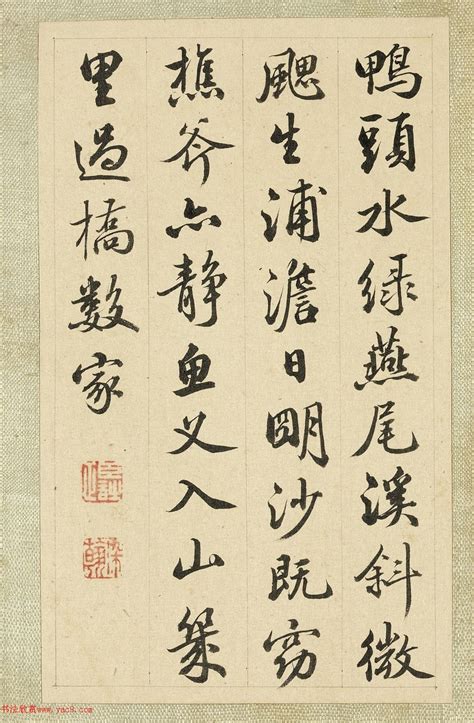 鴨頭水緑燕尾溪斜微
颸生浦澹日朙沙既窈
樵斧亦静魚叉入山幾
里過橋数家
染翰
书法欣赏www.yac8.com